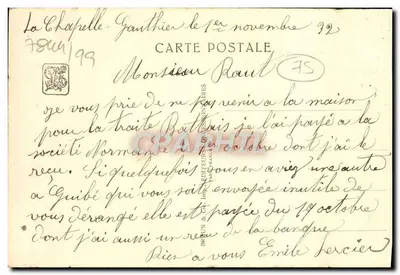 La Chapelle Gauthier le 1er novembre 92
7844/99
CARTE POSTALE
Monsieur Raut
75
je vous prie de ne pas venir a la maison
pour la traite Battais je l'ai payée a la
société Normand 1er octobre dont j'ai le
reçu. Si quelquefois vous en aviez une autre
a Guibé qui vous soit envoyée inutile de
vous dérangé elle est payée du 19 octobre
dont j'ai aussi un reçu de la banque
Rien a vous Emile Lercier